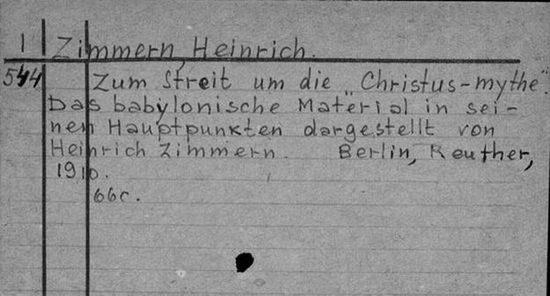 1 Zimmern, Heinrich.
544 Zum Streit um die „Christus-mythe".
Das babylonische Material in sei-
nen Hauptpunkten dargestellt von
Heinrich Zimmern. Berlin, Reuther,
1910.
66c.